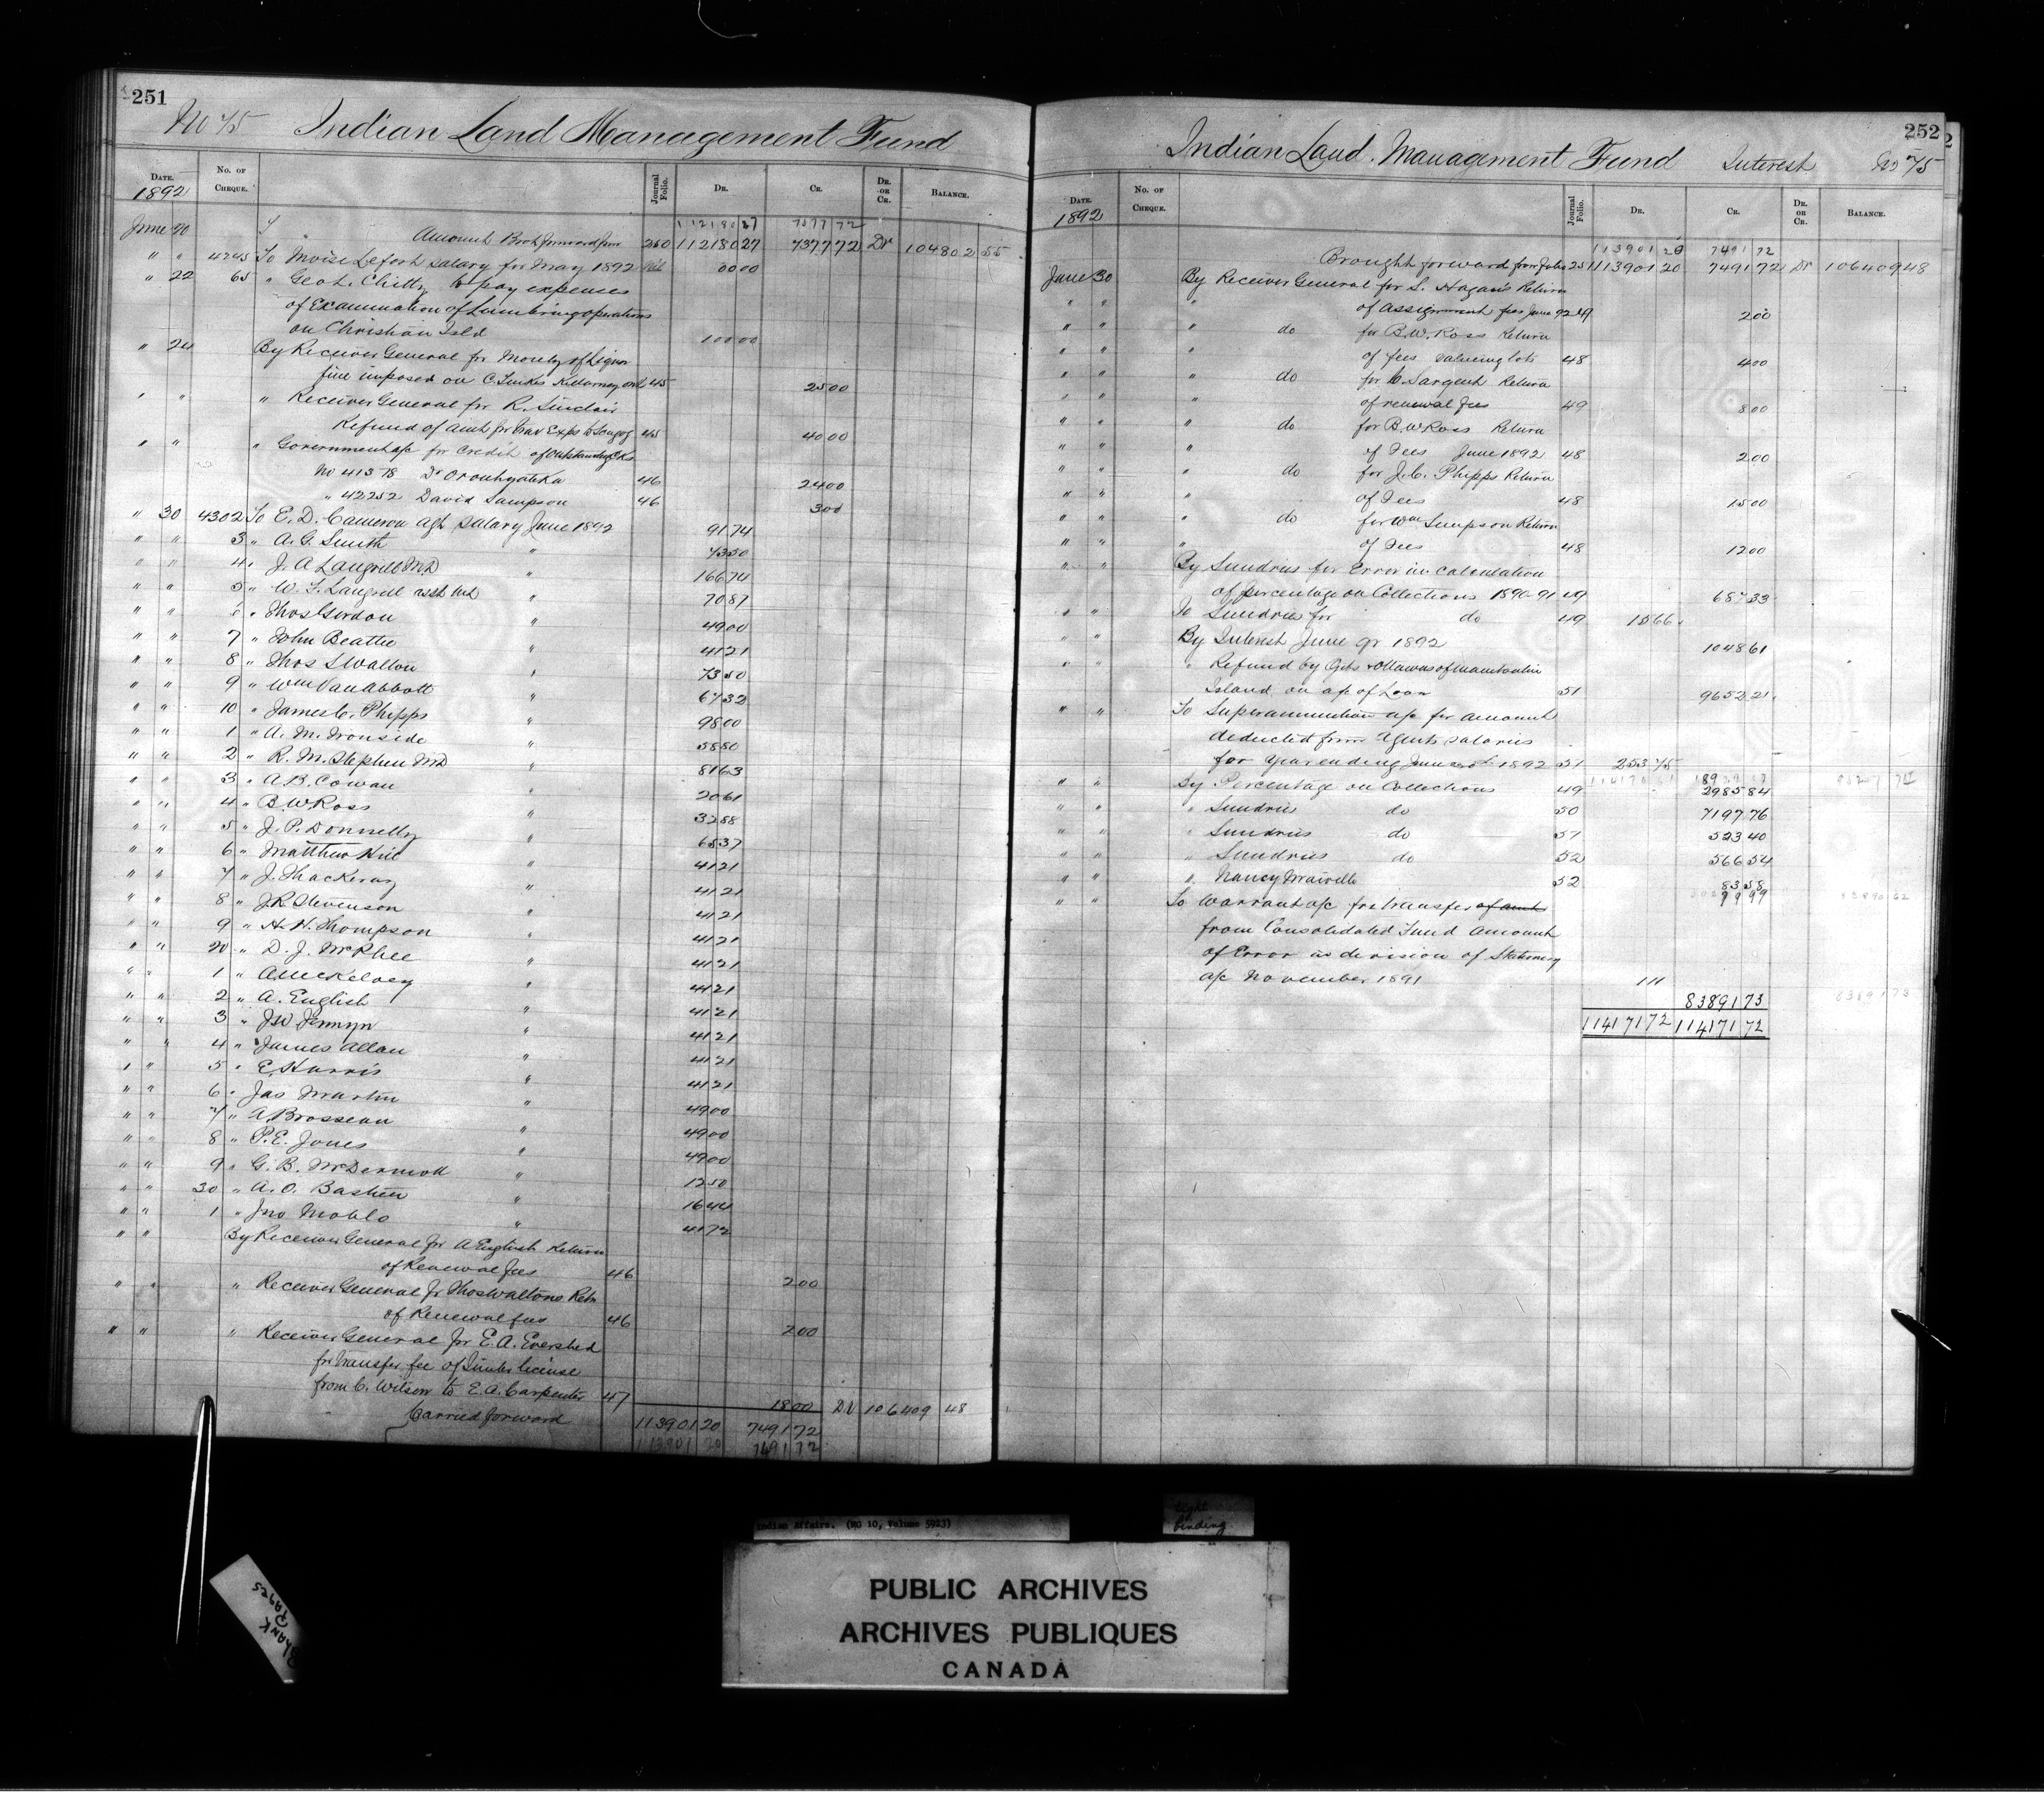 251
No 75 Indian Land Management Fund
DATE. No. OF CHEQUE. Journal Folio. DR. CR. DR. OR CR. BALANCE.
1892
112180 27 7377 72
June 20 Amount Brot forward from 250 112180 27 7377 72 Dr 104802 55
" " 4245 To Moise Lefort salary for May 1892 00 00
" 22 65 " Geo L. Chitty to pay expenses
of Examination of Lumbering operations
on Christian Isld 100 00
" 24 By Receiver General for Moiety of Liquor
fine imposed on C. Tinkis Killarney Ont 45 25 00
" " " Receiver General for R. Sinclair
Refund of amt for trav Exps to Scugog 45 40 00
" " " Government a/c for Credit of Outstanding Cks
No 41378 Dr Oronhyateka 46 24 00
" 42252 David Sampson 46 3 00
" 30 4302 To E. D. Cameron agt Salary June 1892 91 74
" " 3 " A. G. Smith " 73 50
" " 4 " J. A Langrill M.D " 166 74
" " 5 " W. F. Langrill asst Md " 70 87
" " 6 " Thos Gordon " 49 00
" " 7 " John Beattie " 41 21
" " 8 " Thos S Walton " 73 50
" " 9 " Wm Van Abbott " 67 32
" " 10 " James C. Phipps " 98 00
" " 1 " A. M. Ironside " 58 80
" " 2 " R. M. Stephen MD " 81 63
" " 3 " A. B. Cowan " 20 61
" " 4 " B. W Ross " 32 88
" " 5 " J. P. Donnelly " 65 37
" " 6 " Matthew Hill " 41 21
" " 7 " J. Thackeray " 41 21
" " 8 " J. R Stevenson " 41 21
" " 9 " H. H. Thompson " 41 21
" " 20 " D. J. McPhee " 41 21
" " 1 " A McKelvey " 41 21
" " 2 " A. English " 41 21
" " 3 " J W Jermyn " 41 21
" " 4 " James Allan " 41 21
" " 5 " E. Harris " 41 21
" " 6 " Jas Martin " 49 00
" " 7 " A Brosseau " 49 00
" " 8 " P. E. Jones " 49 00
" " 9 " G. B. McDermott " 12 50
" " 30 " A. O. Bastien " 16 44
" " 1 " Jno Moblo " 41 72
" " By Receiver General for A English Return
of Renewal fees 46 2 00
" " " Receiver General for Thos Waltons Retn
of Renewal fees 46 2 00
" " " Receiver General for E. A. Evershed
for transfer fee of Timber license
from C. Wilson to E. A. Carpenter 47 18 00 Dr 106409 48
Carried forward 113901 20 7491 72
113901 20 7491 72
252
Indian Land Management Fund Interest No 75
DATE. No. OF CHEQUE. Journal Folio. DR. CR. DR. OR CR. BALANCE.
1892
113901 20 7491 72
Brought forward from folio 251 113901 20 7491 72 Dr 106409 48
June 30 By Receiver General for S. Hagan's Return
" " " of Assignment fees June 92 49 2 00
" " " do for B. W. Ross Return
" " " of fees valueing lots 48 4 00
" " " do for C. Sargent Return
" " " of renewal fees 49 8 00
" " " do for B. W Ross Return
" " " of Fees June 1892 48 2 00
" " " do for J. C. Phipps Return
" " " of Fees 48 15 00
" " " do for Wm Simpson Return
" " " of Fees 48 12 00
" " By Sundries for Error in Calculation
of percentage on Collections 1890-91 49 687 33
" " To Sundries for do 49 15 66
" " By Interest June qr 1892 1048 61
" " " Refund by Ojbs & Ottawas of Manitoulin
Island on a/c of Loan 51 9652 21
" " To Superannuation a/c for amount
deducted from Agents salaries
for Year ending June 30th 1892 51 253 75
" " By Percentage on Collections 49 2985 84
" " " Sundries do 50 7197 76
" " " Sundries do 51 523 40
" " " Sundries do 52 566 54
" " " Nancy 52 83 58
" " To Warrant a/c for transfer of amt 99 99
from Consolidated Fund Amount
of Error in division of Stationery
a/c November 1891 1 11
83891 73
83891 73
114171 72 114171 72
Indian Affairs. (RG 10, Volume 5923)
tight
binding
PUBLIC ARCHIVES
ARCHIVES PUBLIQUES
CANADA
BLANK
PAGES